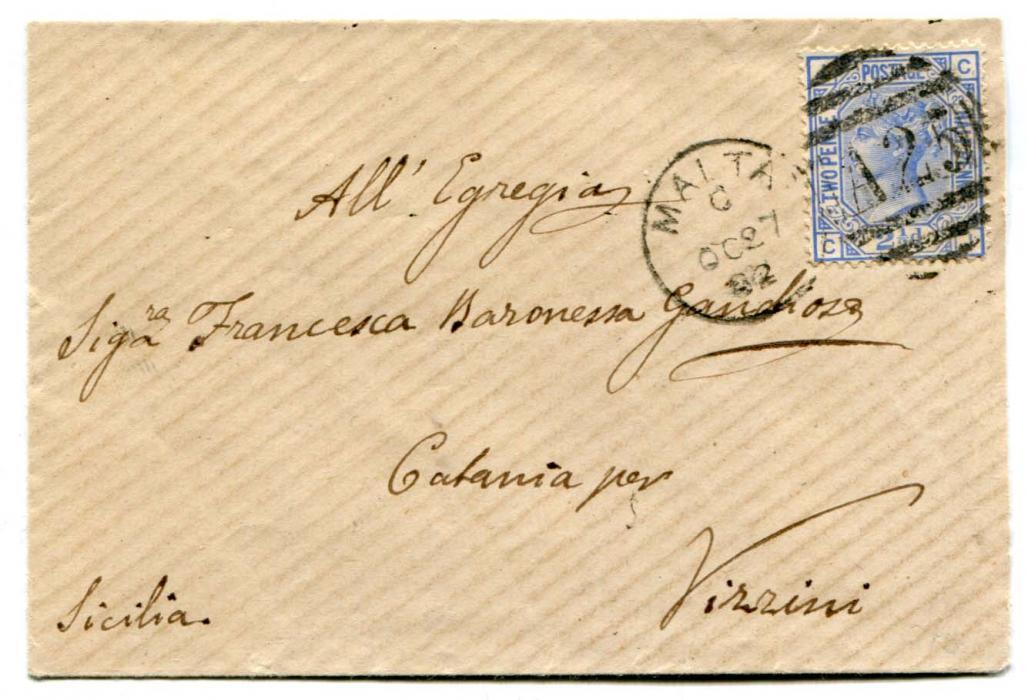 POSTAGE C
TWO PENCE
A25
C 2½d J
MALTA
C
OC 27
82
All' Egregia
Sig.ra Francesca Baronessa
Catania per
Vizzini
Sicilia.